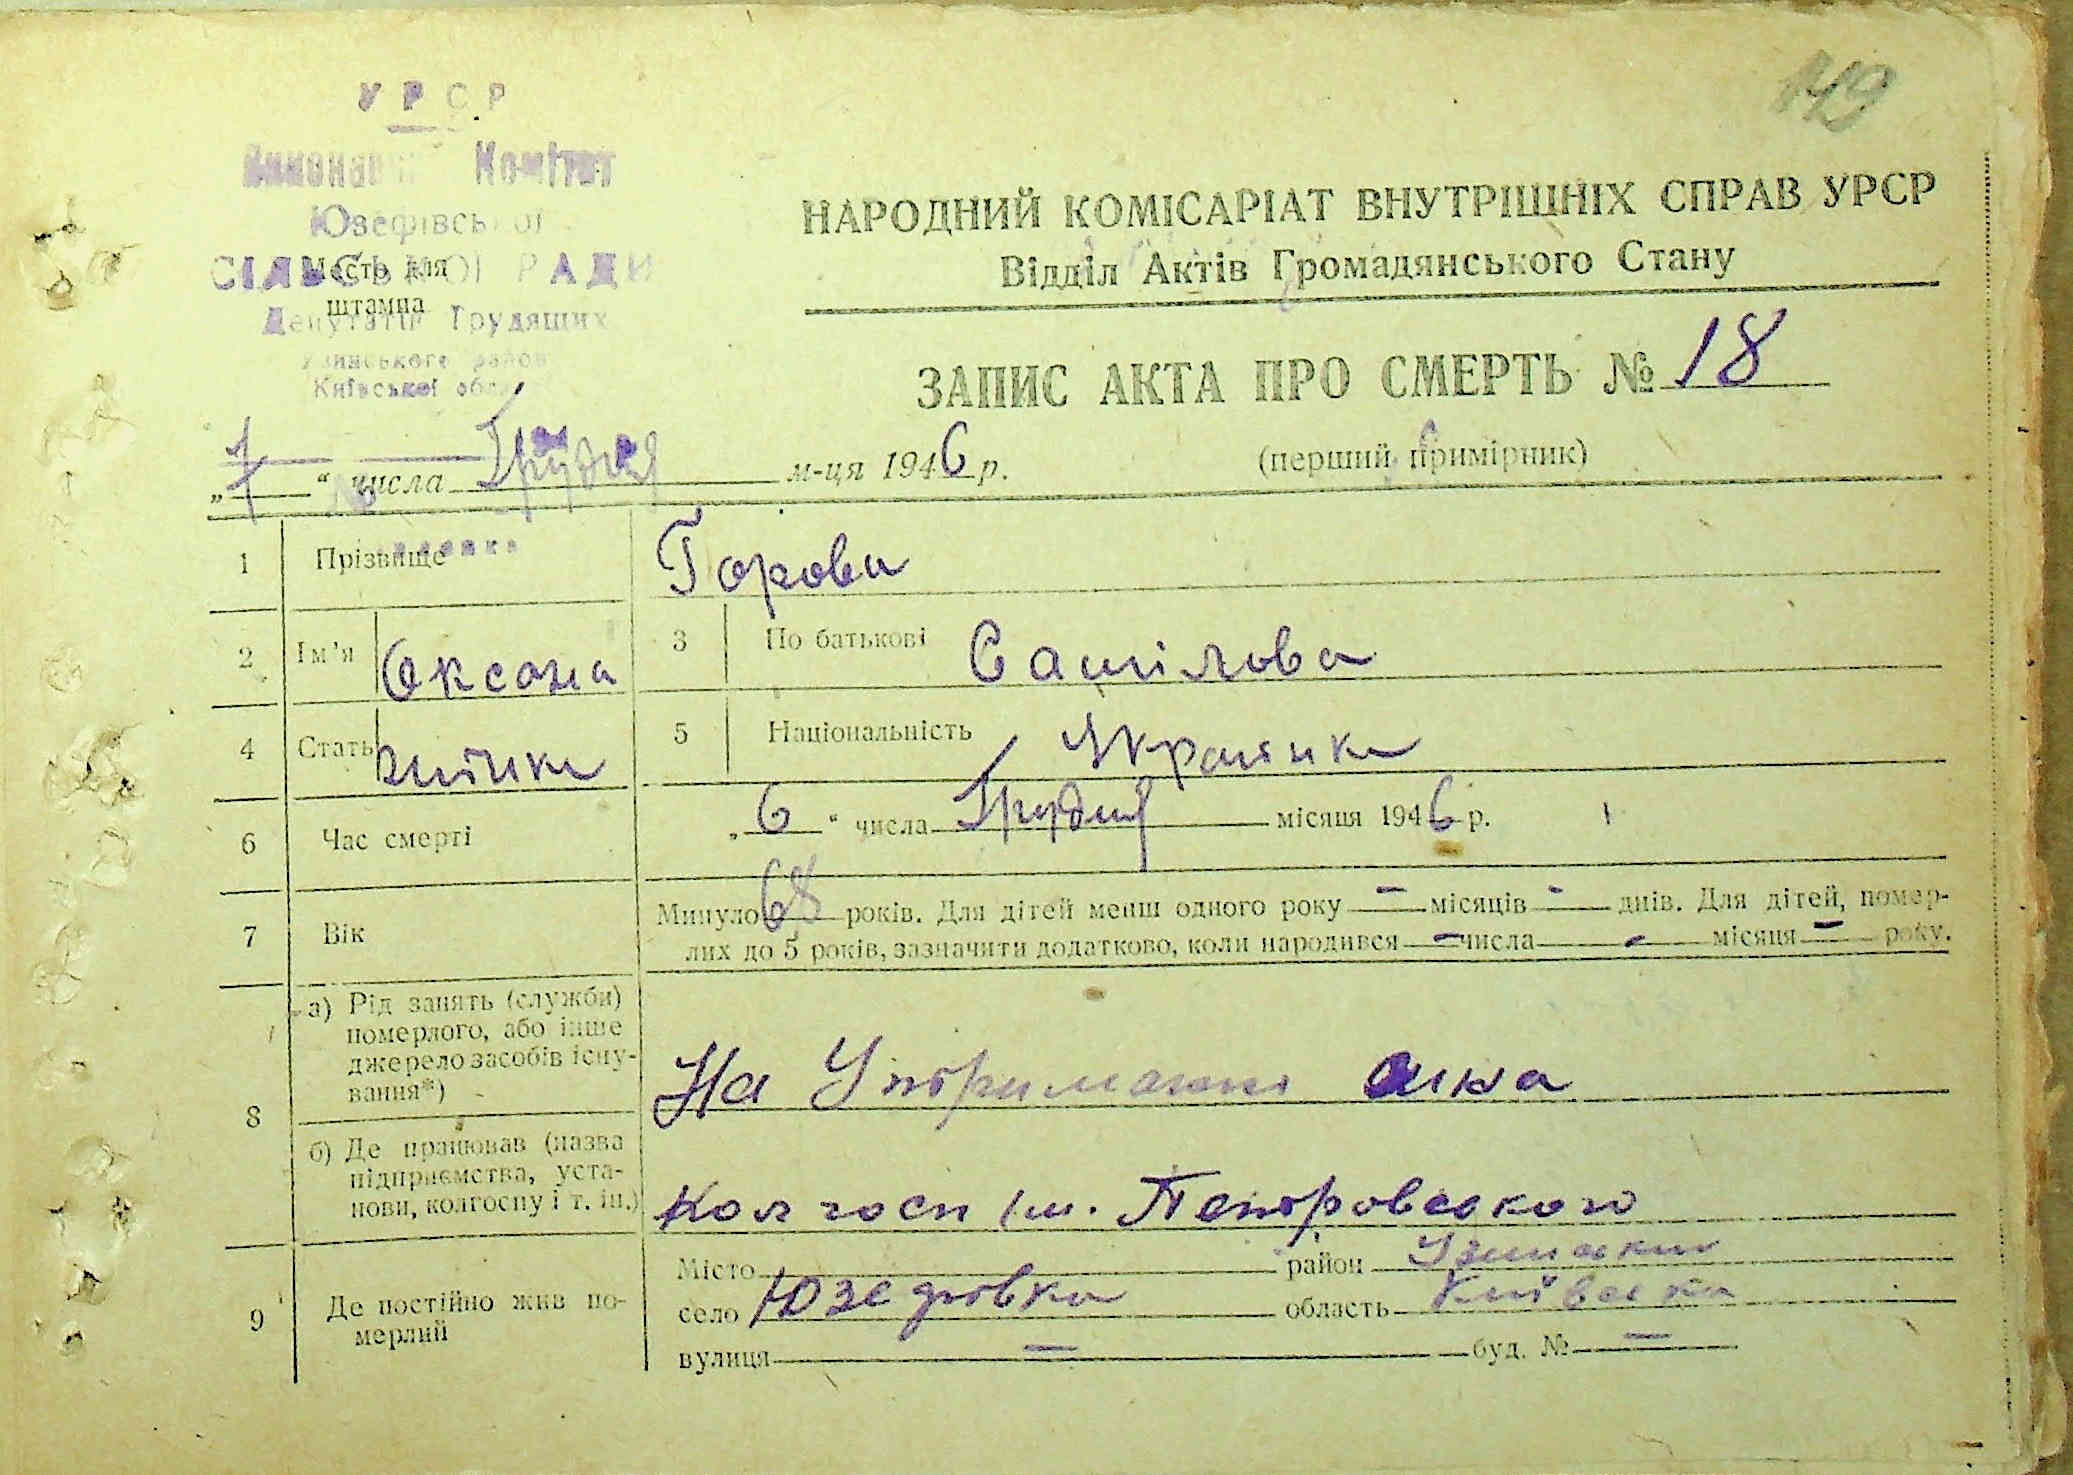 149
УРСР
Виконавчий Комітет
Юзефівської
СІЛЬСЬКОЇ РАДИ
Место для
штампа
Депутатів Трудящих
Узинського району
Київської обл.
НАРОДНИЙ КОМІСАРІАТ ВНУТРІШНІХ СПРАВ УРСР
Відділ Актів Громадянського Стану
ЗАПИС АКТА ПРО СМЕРТЬ № 18
„7“ числа Грудня м-ця 1946 р. (перший примірник)
1 Прізвище Горова
2 Ім'я Оксана 3 По батькові Самілова
4 Стать жінка 5 Національність Українка
6 Час смерті „6“ числа Грудня місяця 1946 р.
7 Вік Минуло 68 років. Для дітей менш одного року – місяців – днів. Для дітей, помер-
лих до 5 років, зазначити додатково, коли народився – числа – місяця – року.
8 а) Рід занять (служби)
померлого, або інше
джерело засобів існу-
вання*)
На Утриманні сина
б) Де працював (назва
підприємства, уста-
нови, колгоспу і т. ін.)
Колгосп ім. Петровського
9 Де постійно жив по-
мерлий
Місто район Узинський
село Юзефівка область Київська
вулиця — буд. № —